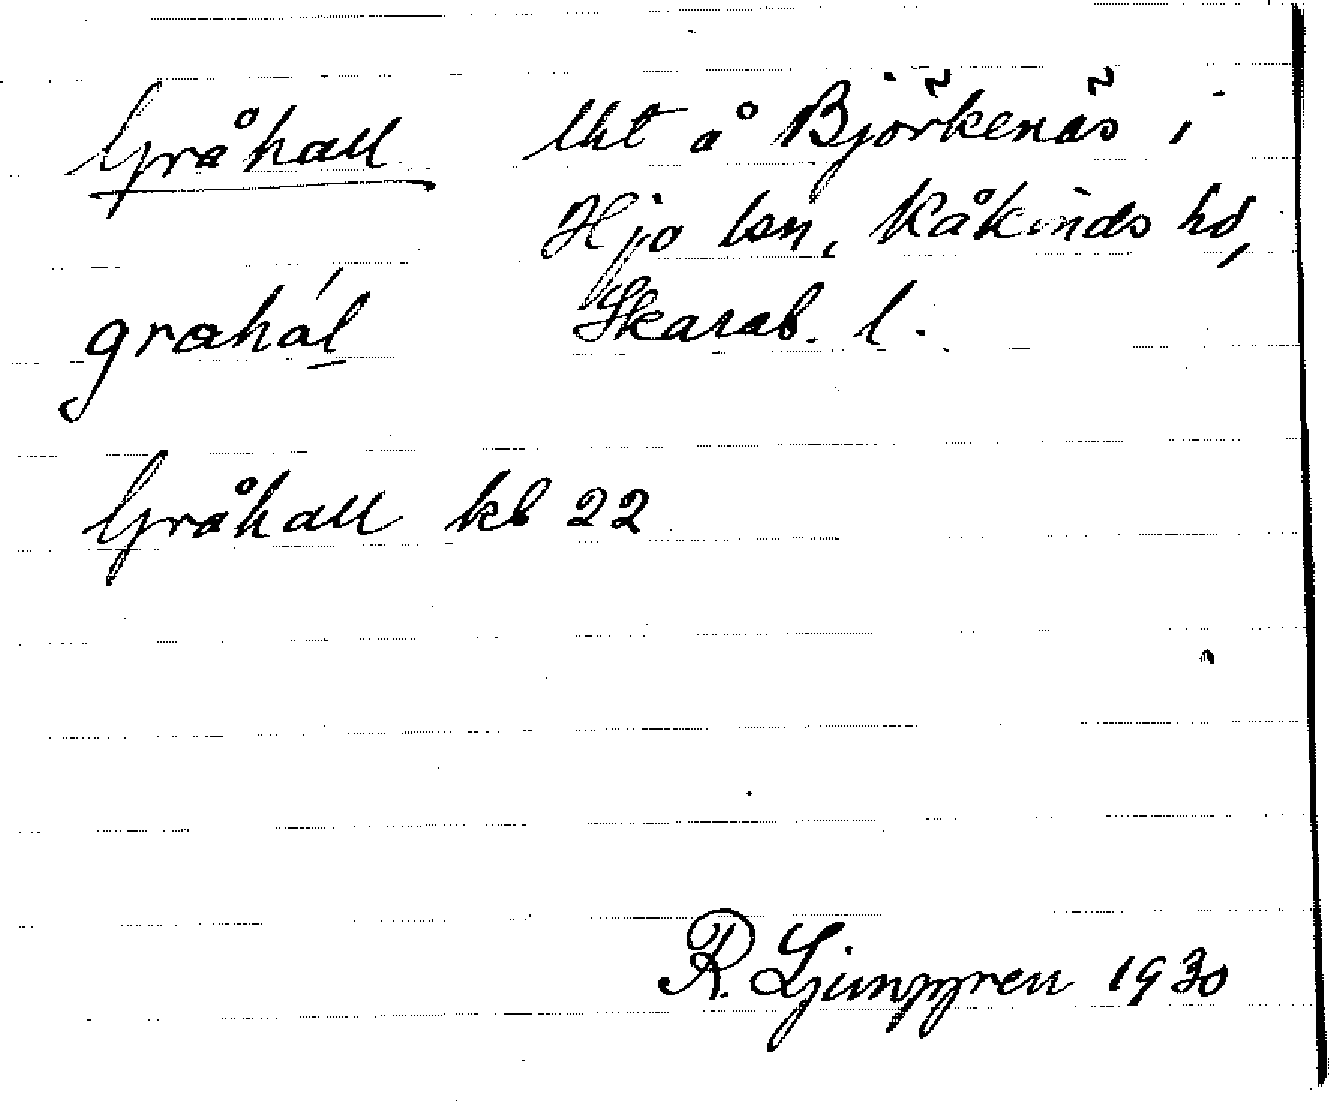 Gråhall lht å Björkenäs i
Hjo lsn, Kåkinds hd,
grahál Skarab. l.
Gråhall kb 22
R. Ljunggren 1930